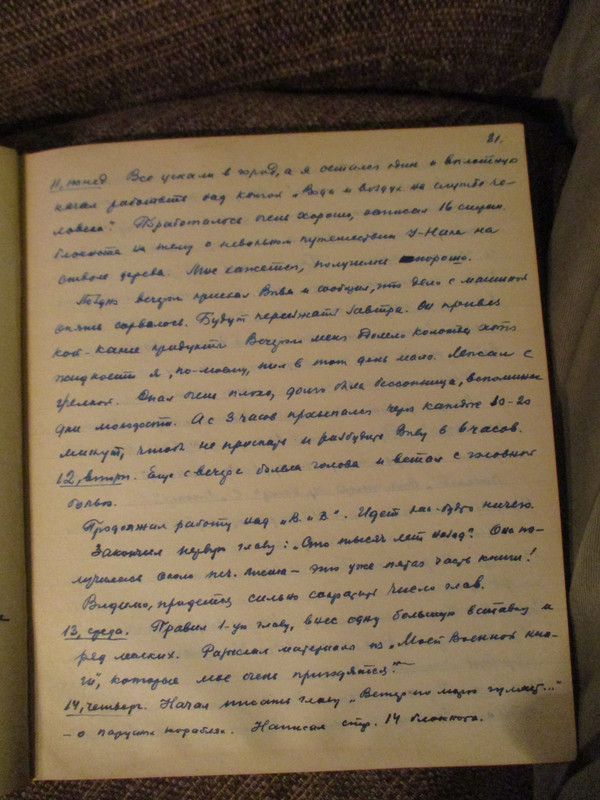 21.
11, понед. Все уехали в город, а я остался один и вплотную
начал работать над книгой „Вода и воздух на службе че-
ловека". Проработалось очень хорошо, написал 16 стран.
блокнота на тему о невольном путешествии У-Нака на
стволе дерева. Мне кажется, получилось хорошо.
вечером приехал Вива и сообщил, что дело с машиной
опять сорвалось. Будут переезжать завтра. Он привез
кой-какие продукты. Вечером меня колотье, хотя
жидкости я, по-моему, пил в этот день мало. Лежал с
грелкой. Спал очень плохо, долго была бессонница, вспоминал
дни молодости. А с 3 часов просыпался через каждые 10-20
минут, чтобы не проспать и разбудить Виву в 6 часов.
12, вторн. Еще с вечера болела голова и встал с головной
болью.
Продолжал работу над „В. и В.". Идет как-будто ничего.
Закончил первую главу: „Сто тысяч лет назад". Она по-
лучилась около печ. листа – это уже пятая часть книги!
Видимо, придется сильно сокращать число глав.
13, среда. Правил 1-ую главу, внес одну большую вставку и
ряд мелких. Разыскал материалы из „Моей Военной кни-
ги", которые мне очень пригодятся.
14, четверг. Начал писать главу „Ветер по морю гуляет..."
– о парусных кораблях. Написал стр. 14 блокнота.